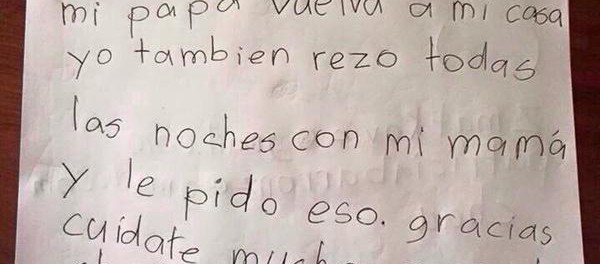 mi papá vuelva a mi casa
yo tambien rezo todas
las noches con mi mamá
y le pido eso. gracias
cuídate